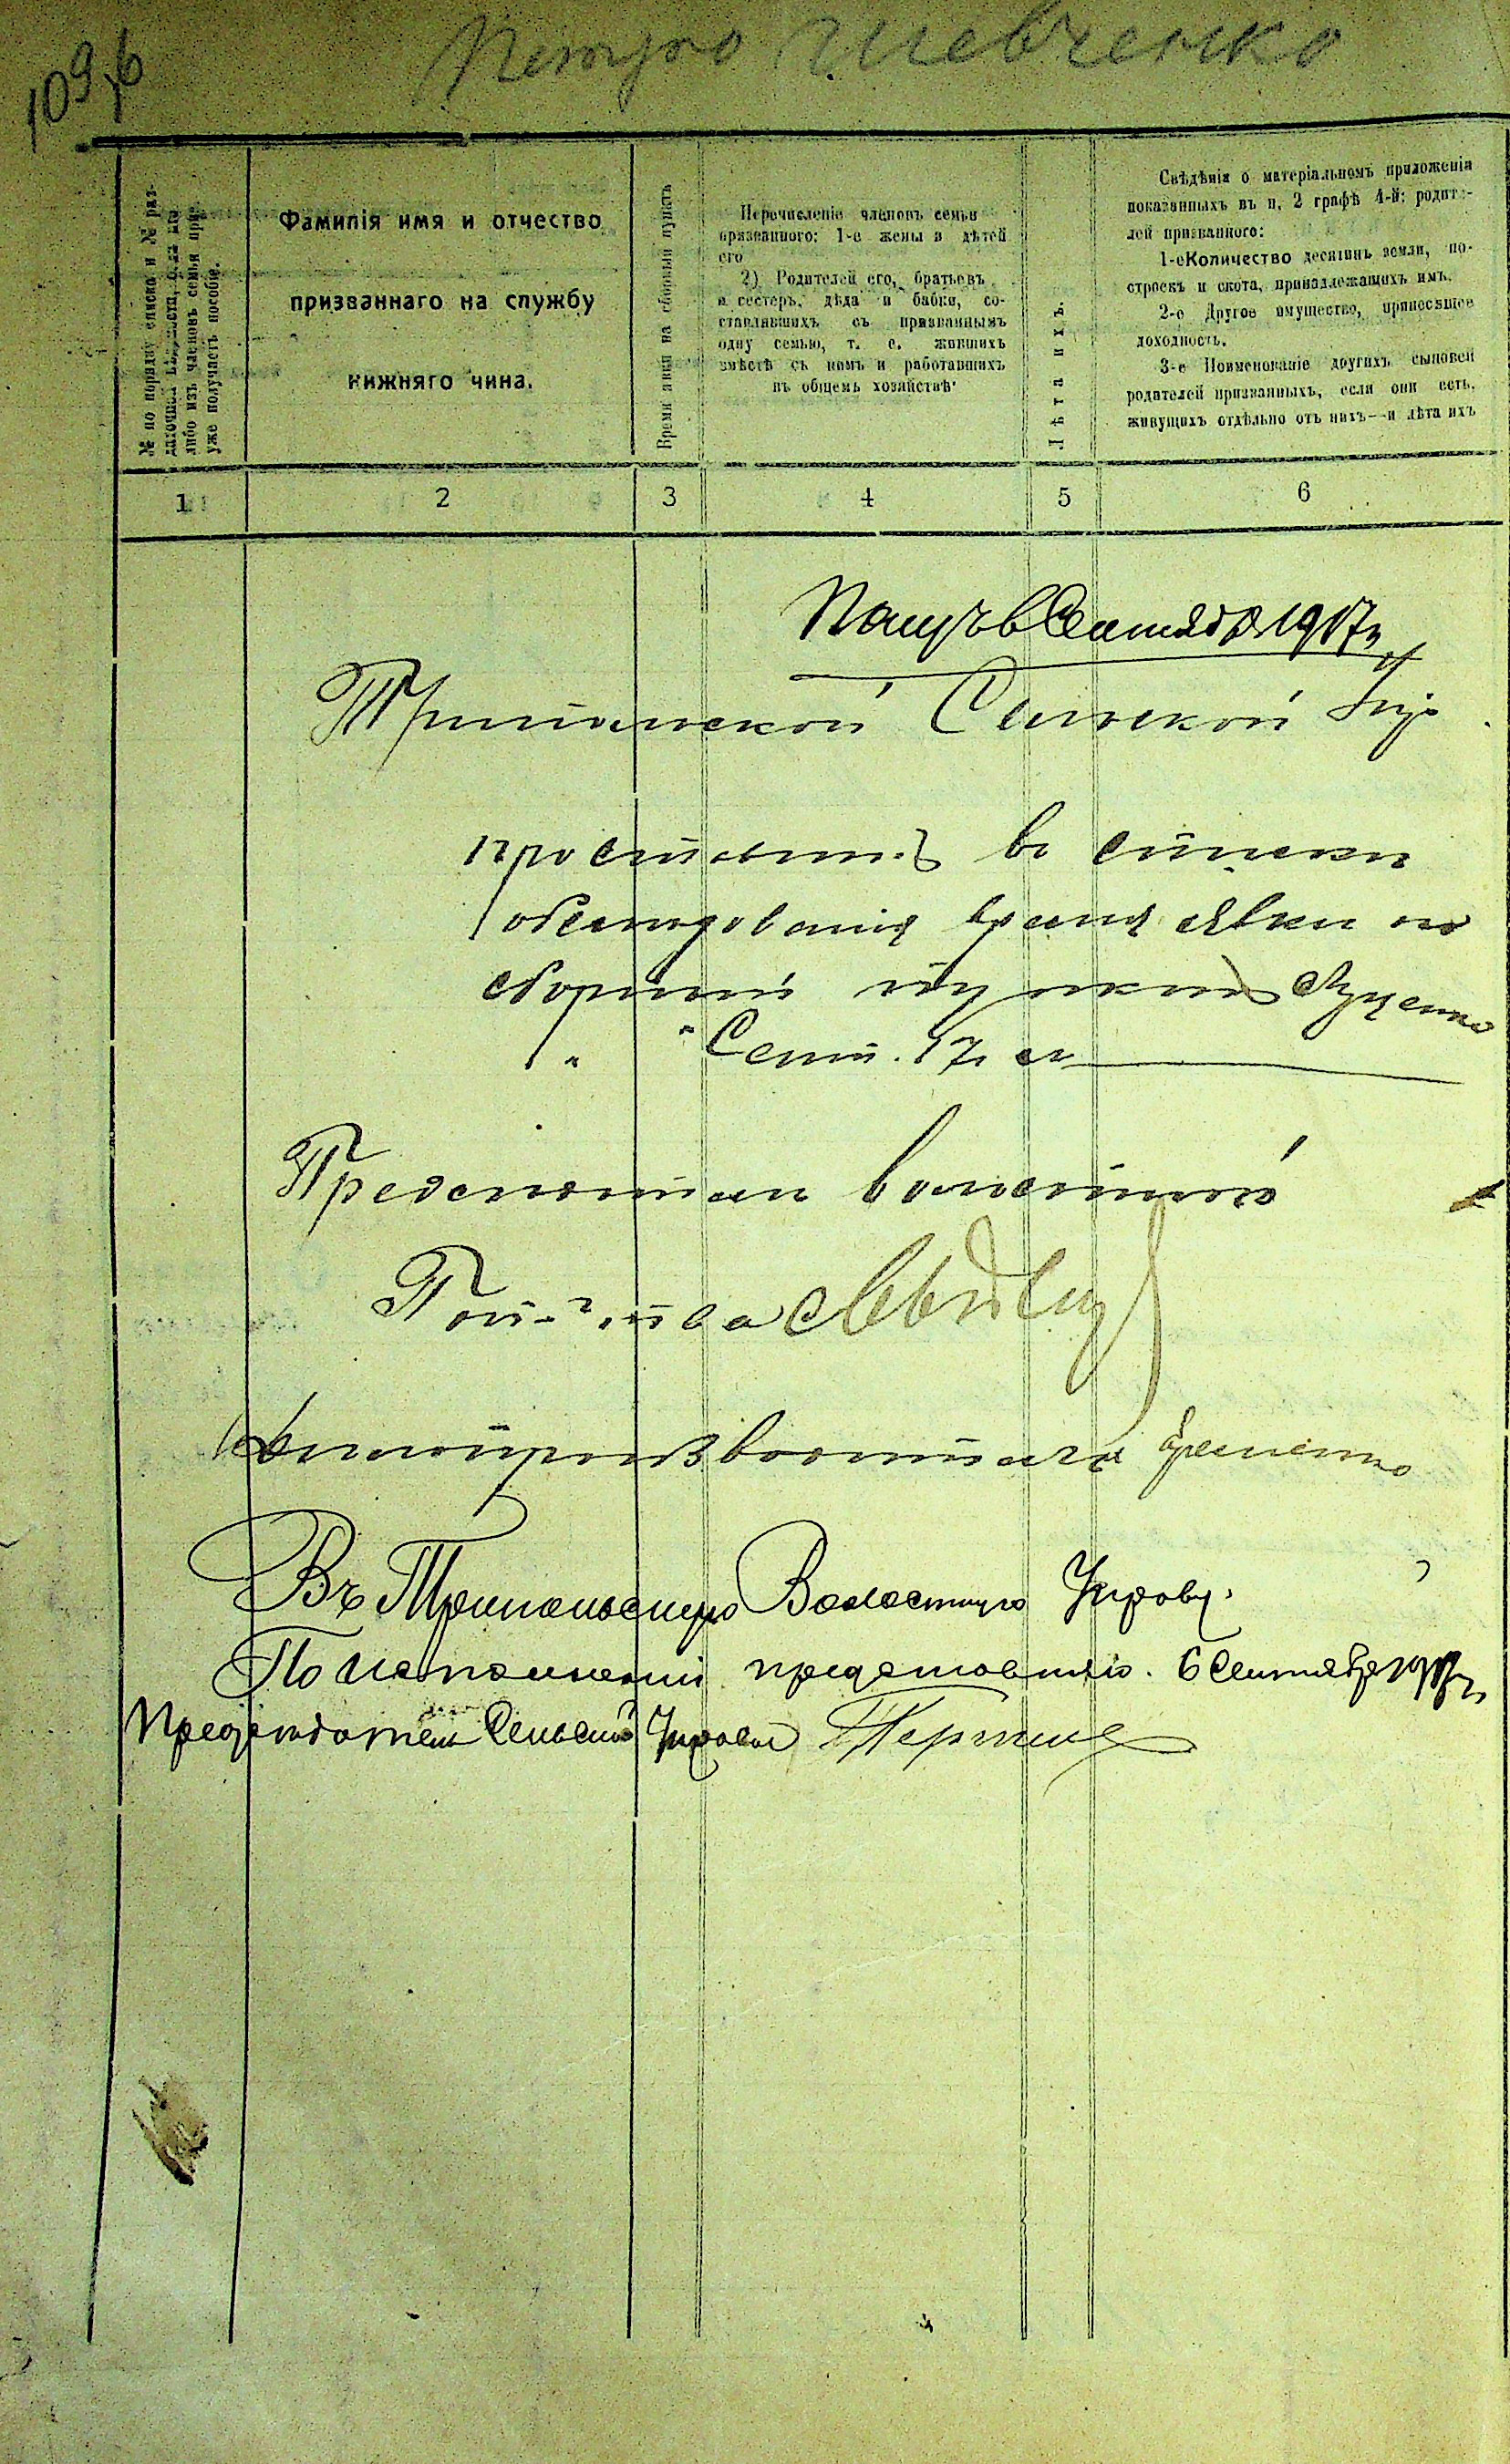 Петро Шевченко
109
№ по порядку списка и № раз-
либо изъ членовъ семьи приз.
уже получаетъ пособіе.
Фамилія имя и отчество
призваннаго на службу
нижняго чина.
Время явки на сборный пунктъ
Перечисленіе членовъ семьи
призванного: 1-е жены и дѣтей
его
2) Родителей его, братьевъ
и сестеръ, дѣда и бабки, со-
ставлявшихъ съ призваннымъ
одну семью, т. е. жившихъ
вмѣстѣ съ нимъ и работавшихъ
въ общемъ хозяйствѣ
Лѣта ихъ.
Свѣдѣнія о матеріальномъ приложенія
показанныхъ въ п. 2 графѣ 4-й: родите-
лей призванного:
1-е Количество десятинъ земли, по-
строекъ и скота, принадлежащихъ имъ.
2-е Другое имущество, приносящее
доходность.
3-е Поименованіе другихъ сыновей
родителей призванныхъ, если они есть,
живущихъ отдѣльно отъ нихъ—и лѣта ихъ
1 2 3 4 5 6
Сентября 1917 г.
Трипольской Сельской Упр
проставить въ списки
обслѣдованія время явки на
сборный пунктъ
" " Сент. 17 г.
Предсѣдатель волостной
Дѣлопроизводитель
Въ Трипольскую Волостную Управу.
По исполненіи представляю. 6 Сентября 1917 г.
Предсѣдатель Сельской Управы